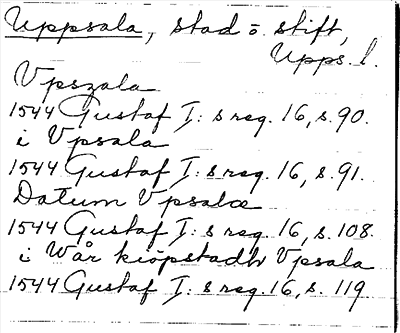 Uppsala, stad o. stift,
Upps. l.
Vpszala
1544 Gustaf I: s reg. 16, s. 90.
i Vpsala
1544 Gustaf I: s reg. 16, s. 91.
Datum Vpsalæ
1544 Gustaf I: s reg. 16, s. 108.
i Wår kiöpstadh Vpsala
1544 Gustaf I: s reg. 16, s. 119